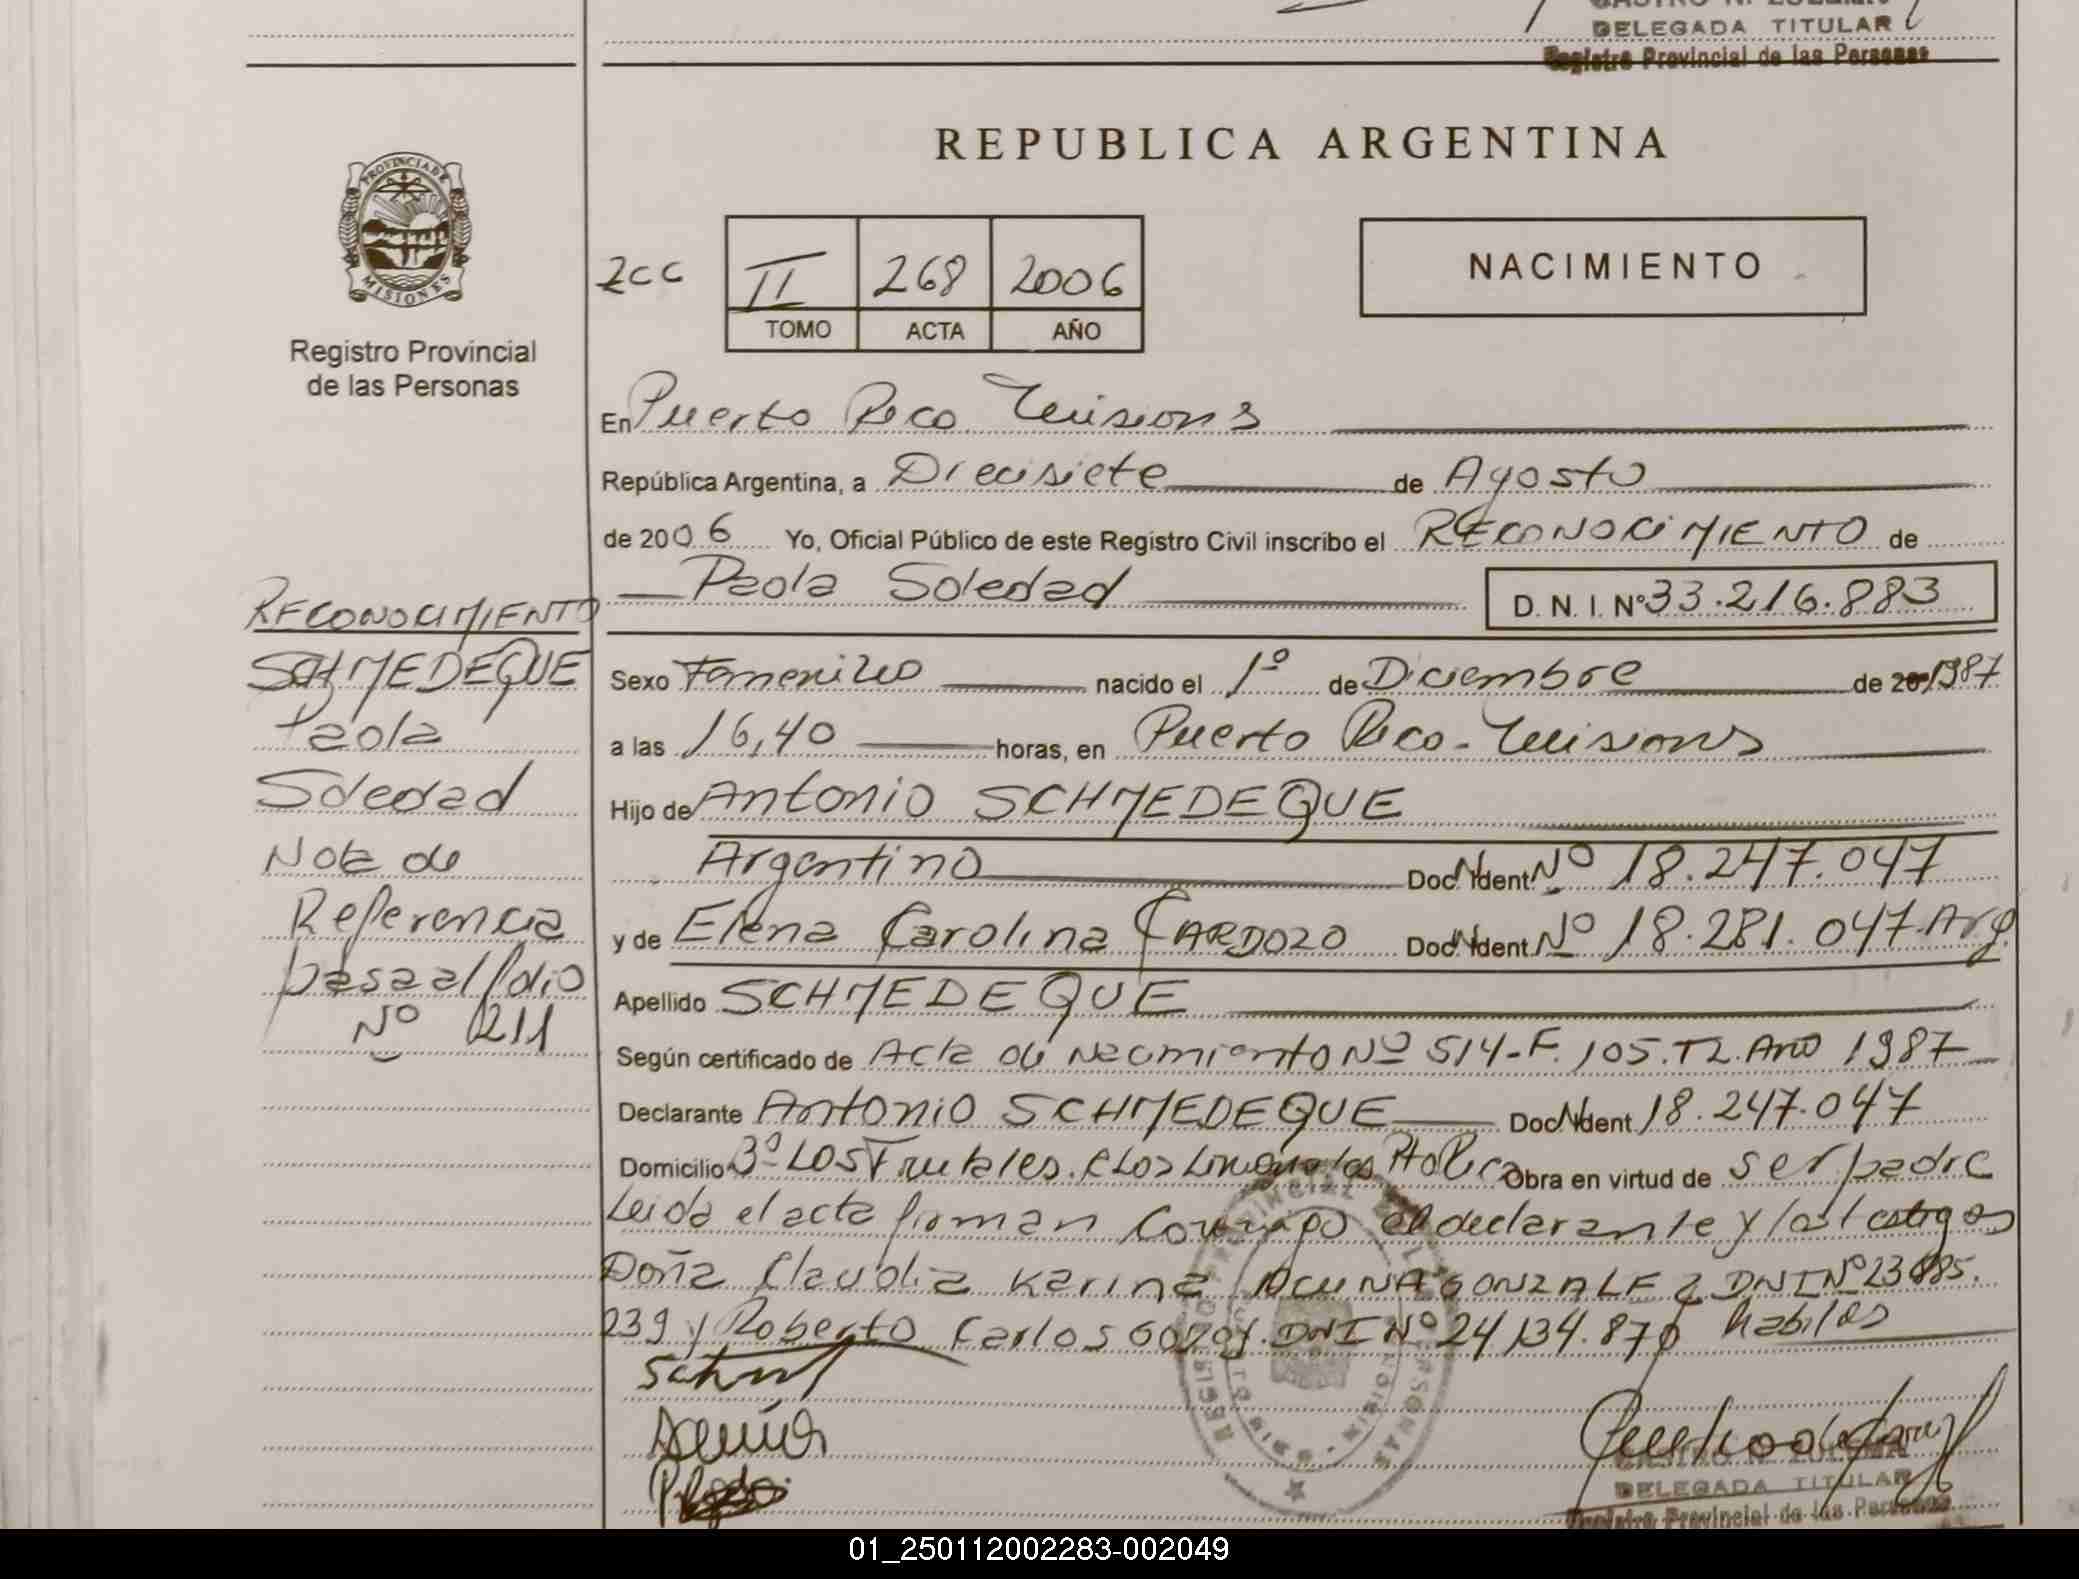 DELEGADA TITULAR
Registro Provincial de las Personas
REPUBLICA ARGENTINA
PROVINCIA DE
MISIONES
Registro Provincial
de las Personas
II 268 2006
TOMO ACTA AÑO
NACIMIENTO
En Puerto Rico Misiones
República Argentina, a Diecisiete de Agosto
de 2006 Yo, Oficial Público de este Registro Civil inscribo el RECONOCIMIENTO de
Paola Soledad D. N. I. Nº 33.216.883
RECONOCIMIENTO
SCHMEDEQUE
Paola
Soledad
Nota de
Referencia
pasa al folio
Nº 211
Sexo Femenino nacido el 1º de Diciembre de 20 1987
a las 16,40 horas, en Puerto Rico - Misiones
Hijo de Antonio SCHMEDEQUE
Argentino Doc. Ident. Nº 18.247.047
y de Elena Carolina CARDOZO Doc. Ident. Nº 18.281.047 - Arg.
Apellido SCHMEDEQUE
Según certificado de Acta de Nacimiento Nº 514 - F. 105. T2. Año 1987
Declarante Antonio SCHMEDEQUE Doc. Ident 18.247.047
Domicilio Bº Los Frutales. Pto Rico Obra en virtud de ser padre
Leida el acta firman conmigo el declarante y los testigos
Doña Claudia Karina ACUÑA GONZALEZ DNI Nº 23
239 y Roberto Carlos DNI Nº 24.134.870 habiles
DELEGADA TITULAR
Registro Provincial de las Personas
01_250112002283-002049